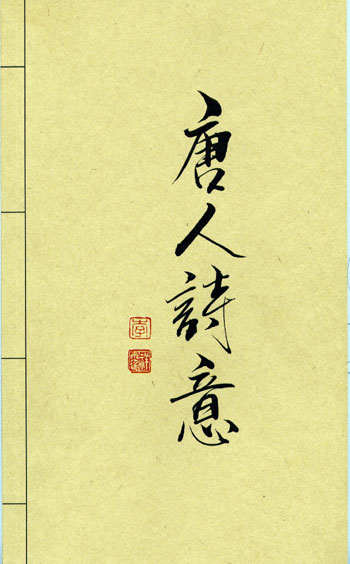 唐人詩意